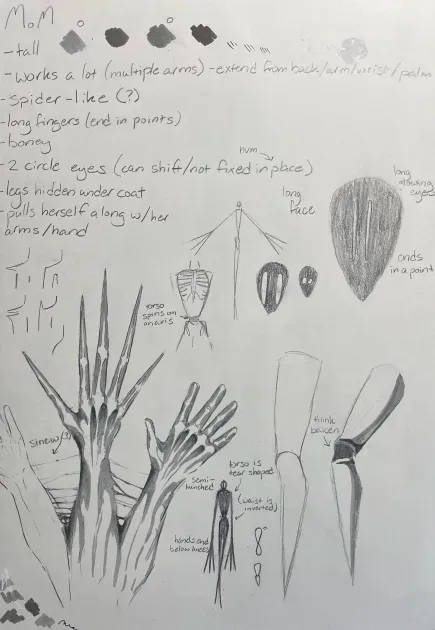 MoM
-tall
-works a lot (multiple arms) -extend from back/arm/wrist/palm
-spider-like (?)
-long fingers (end in points)
-boney
hum
-2 circle eyes (can shift/not fixed in place)
-legs hidden under coat
-pulls herself along w/her
arms/hand
long
face
long
glowing
eyes
ends
in a point
torso
spins on
an axis
sinew(?)
think
balcen
torso is
tear shaped
semi-
hunched
(waist is
inverted)
hands end
below knees